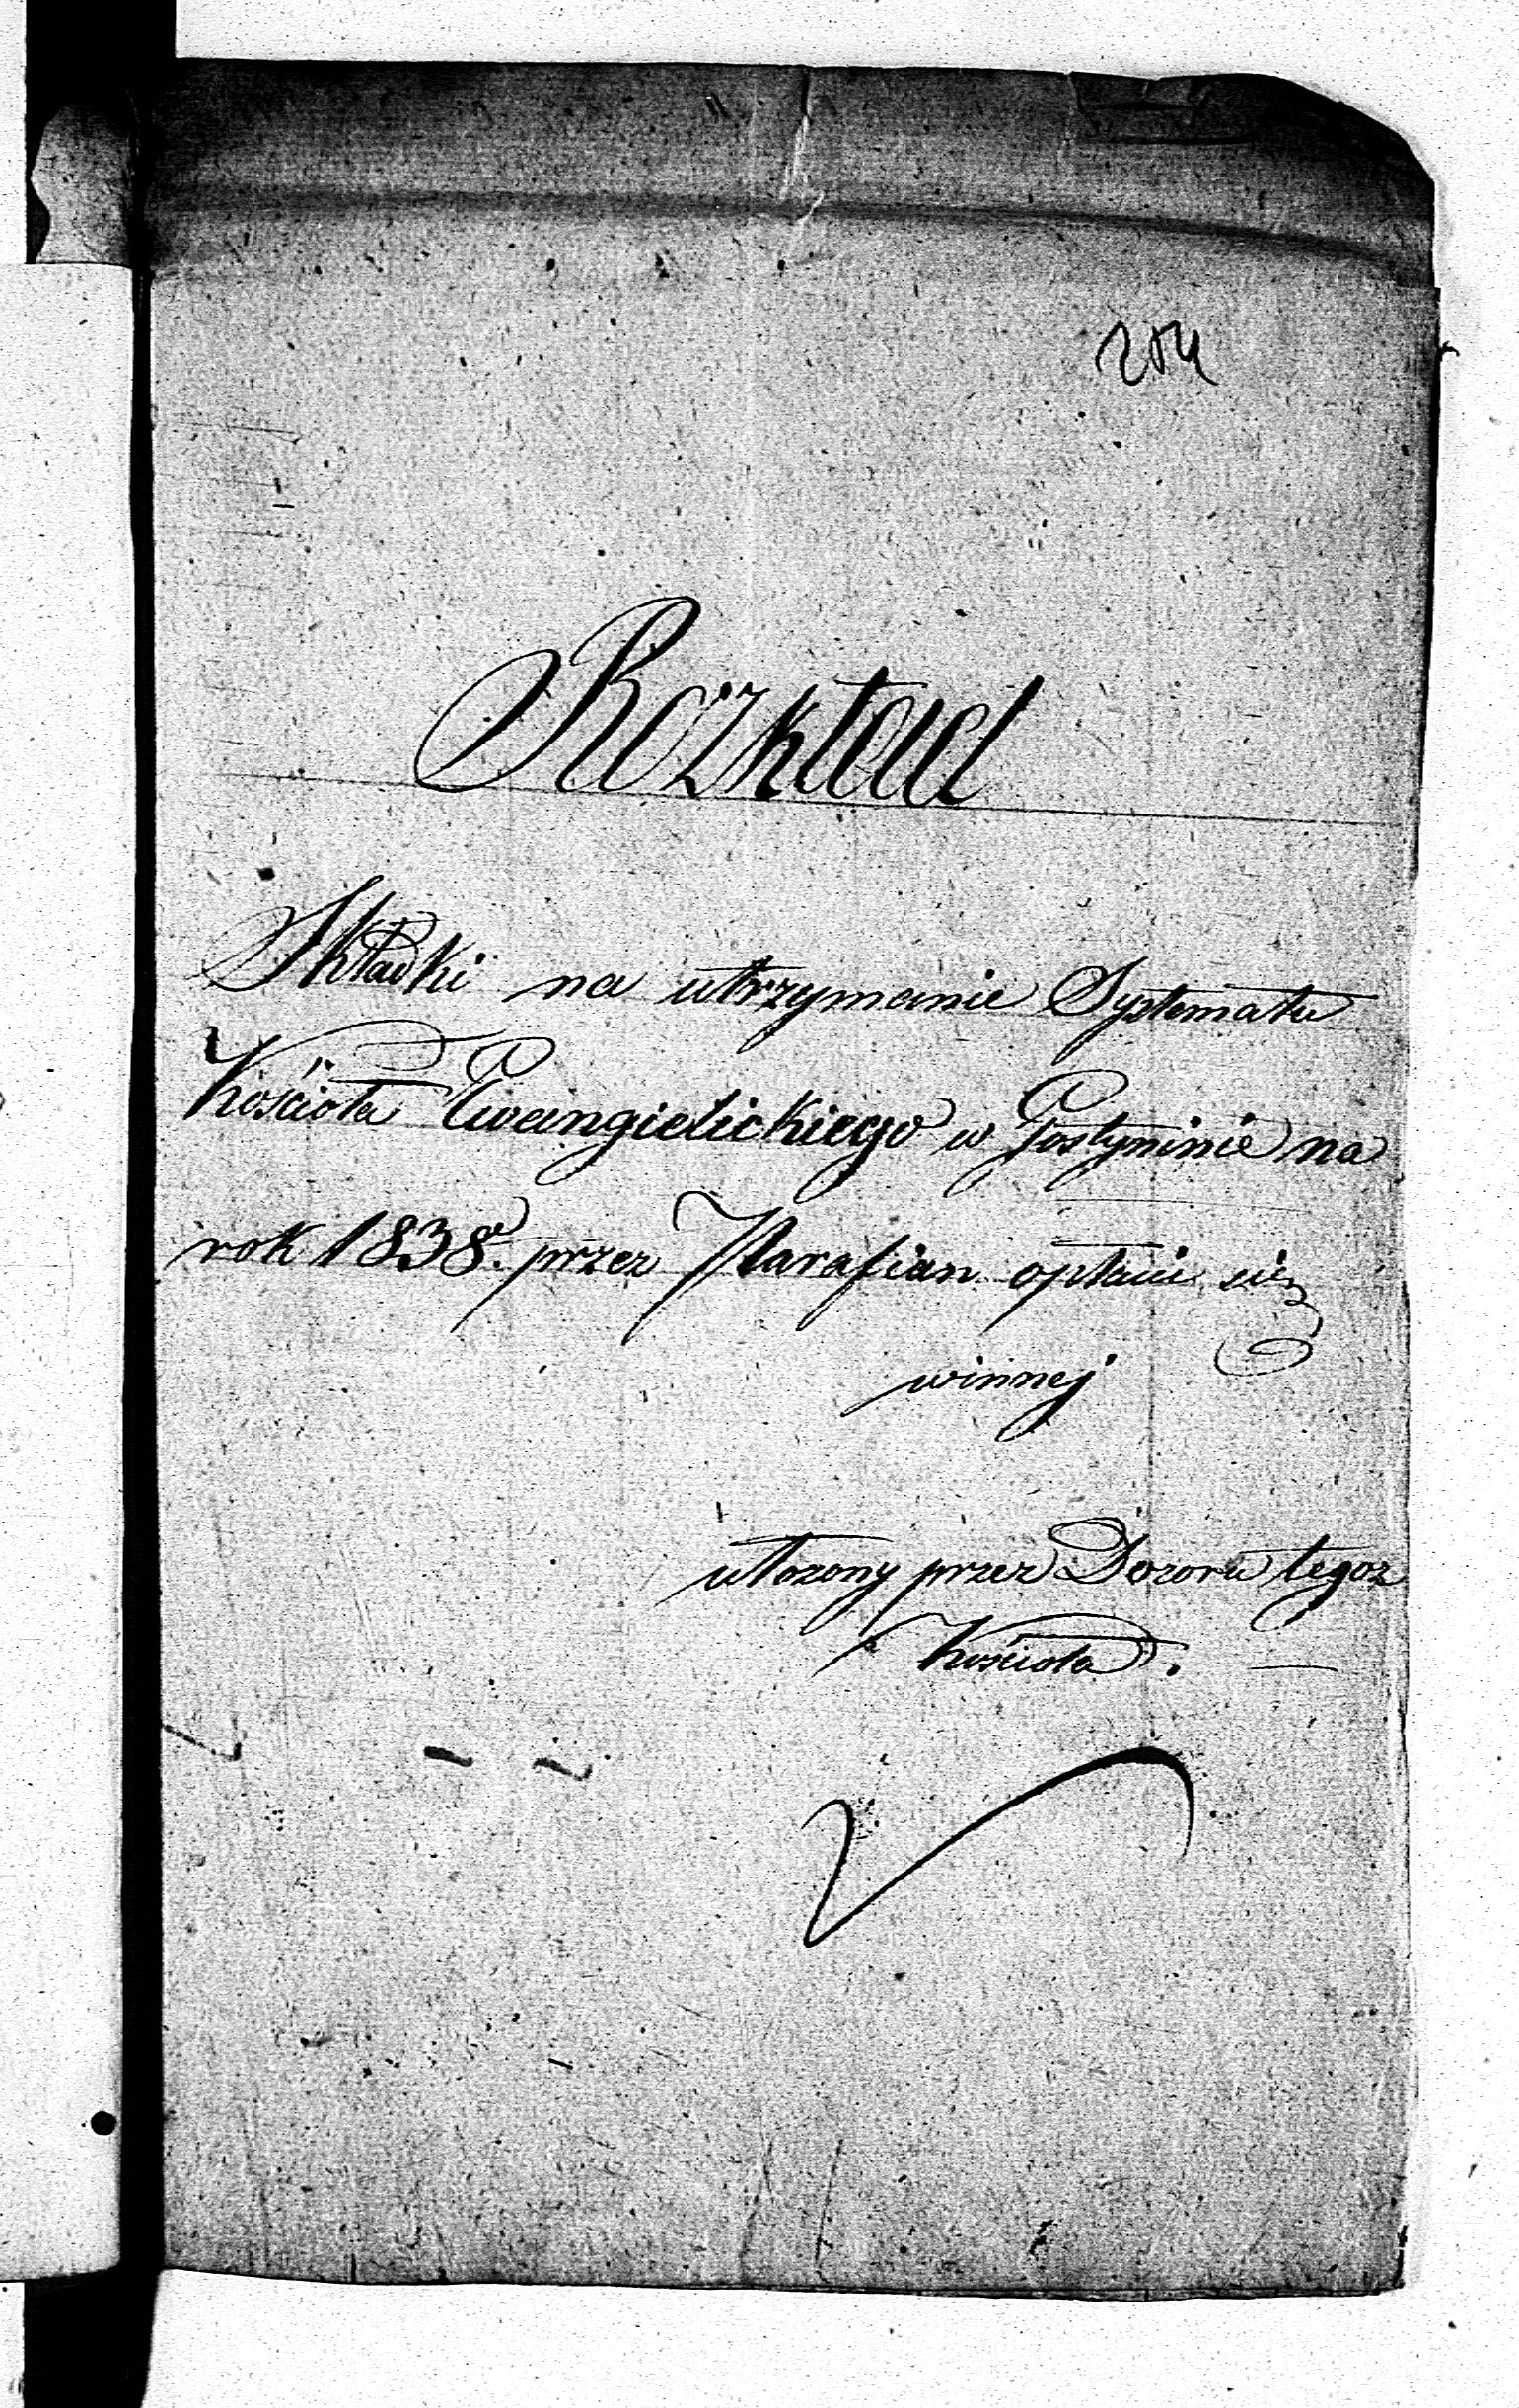 204
Rozkład
Składki na utrzymanie Systematu
Kościoła Ewangielickiego w Gostyninie na
rok 1838. przez Parafian opłacić się
winnej
ułożony przez Dozoru tegoż
Kościoła.